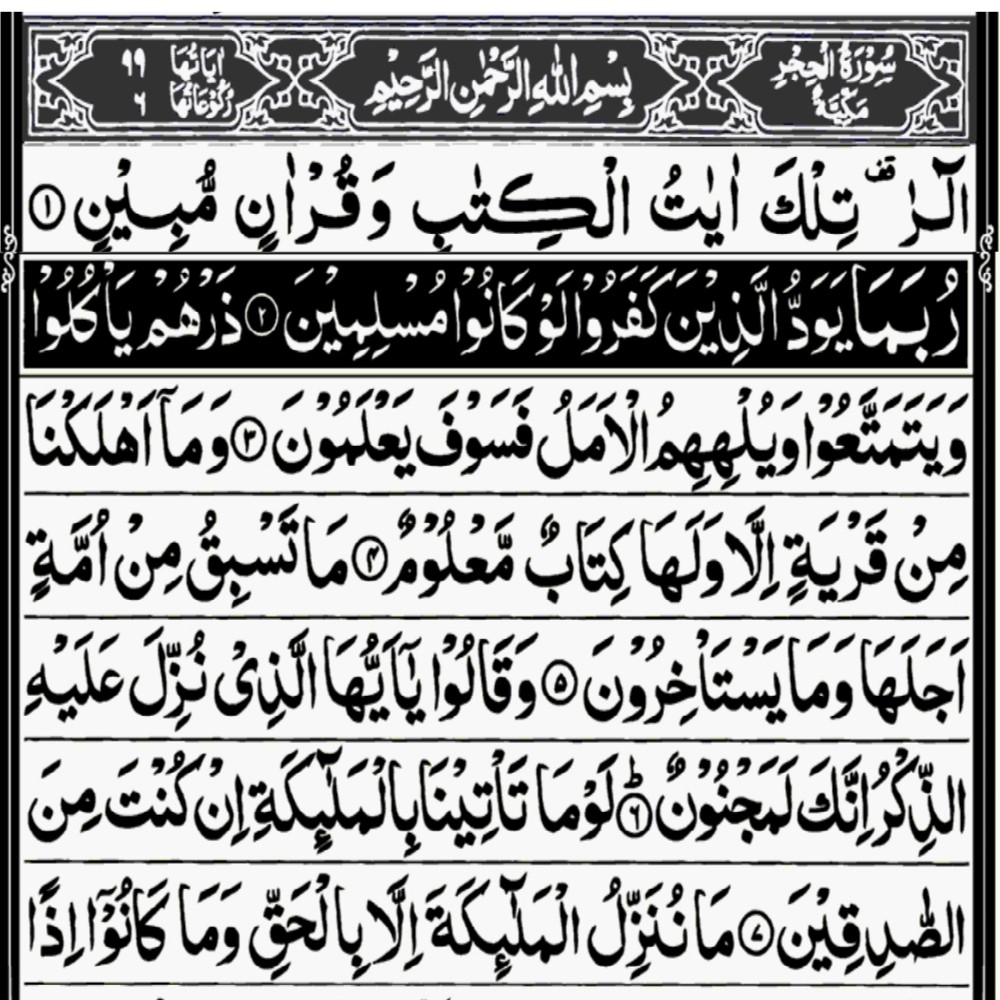 سُوْرَةُ الْحِجْرِ مَكِّيَّةٌ
بِسْمِ اللهِ الرَّحْمٰنِ الرَّحِيْمِ
اٰيَاتُهَا ٩٩
رُكُوْعَاتُهَا ٦
الٓرٰ ۫ تِلْكَ اٰيٰتُ الْكِتٰبِ وَ قُرْاٰنٍ مُّبِيْنٍ ①
رُبَمَا يَوَدُّ الَّذِيْنَ كَفَرُوْا لَوْ كَانُوْا مُسْلِمِيْنَ ② ذَرْهُمْ يَاْكُلُوْا
وَيَتَمَتَّعُوْا وَيُلْهِهِمُ الْاَمَلُ فَسَوْفَ يَعْلَمُوْنَ ③ وَمَاۤ اَهْلَكْنَا
مِنْ قَرْيَةٍ اِلَّا وَلَهَا كِتَابٌ مَّعْلُوْمٌ ④ مَا تَسْبِقُ مِنْ اُمَّةٍ
اَجَلَهَا وَمَا يَسْتَاْخِرُوْنَ ⑤ وَقَالُوْا يٰۤاَيُّهَا الَّذِىْ نُزِّلَ عَلَيْهِ
الذِّكْرُ اِنَّكَ لَمَجْنُوْنٌ ⑥ؕ لَوْمَا تَاْتِيْنَا بِالْمَلٰٓئِكَةِ اِنْ كُنْتَ مِنَ
الصّٰدِقِيْنَ ⑦ مَا نُنَزِّلُ الْمَلٰٓئِكَةَ اِلَّا بِالْحَقِّ وَمَا كَانُوْۤا اِذًا